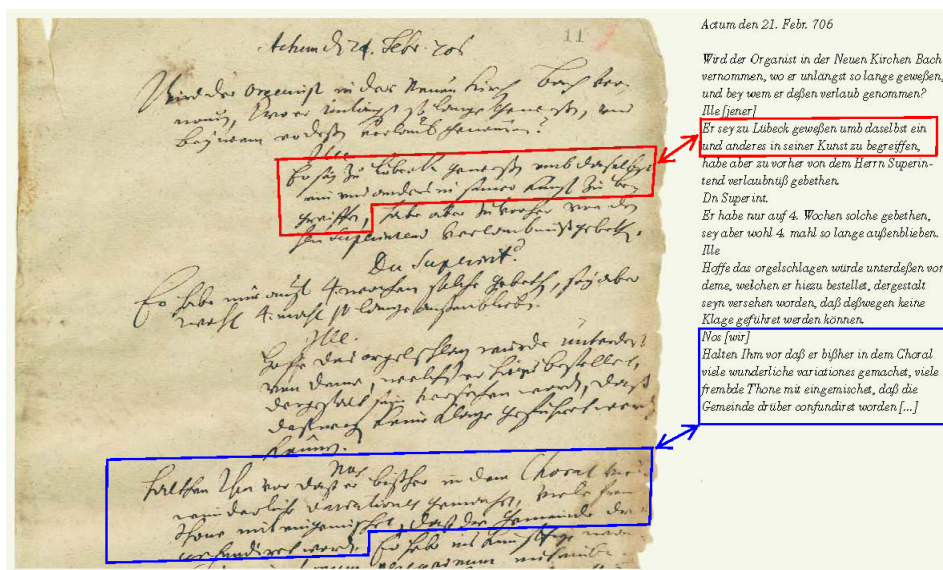 11
Actum d 21. Febr. 706
Wird der Organist in der Neuen Kirch Bach ver-
nommen, wo er unlängst so lange geweßen, und
bey wem er deßen verlaub genommen?
Ille
Er sey zu Lübeck geweßen umb daselbst
ein und anderes in seiner Kunst zu be-
greiffen, habe aber zu vorher von dem
Superintend verlaubnüß gebeth.
Dn Superint.
Er habe nur auf 4 wochen solche gebeth, sey aber
wohl 4. mahl so lange außenblieben
Ille.
Hoffe das orgelschlagen würde unterdeß
von deme, welchen er hiezu bestellet,
dergestalt seyn versehen word, daß
deßweg keine Klage geführet werd
können.
Nos
Halthen Ihm vor daß er bißher in dem Choral
wunderliche variationes gemachet, viele
Thone mit eingemischet, daß die Gemeinde
confundiret word. Er habe ins Künfftige
Actum den 21. Febr. 706
Wird der Organist in der Neuen Kirchen Bach
vernommen, wo er unlängst so lange geweßen,
und bey wem er deßen verlaub genommen?
Ille [jener]
Er sey zu Lübeck geweßen umb daselbst ein
und anderes in seiner Kunst zu begreiffen,
habe aber zu vorher von dem Herrn Superin-
tend verlaubnüß gebethen.
Dn Superint.
Er habe nur auf 4. Wochen solche gebethen,
sey aber wohl 4. mahl so lange außenblieben.
Ille
Hoffe das orgelschlagen würde unterdeßen von
deme, welchen er hiezu bestellet, dergestalt
seyn versehen worden, daß deßwegen keine
Klage geführet werden können.
Nos [wir]
Halten Ihm vor daß er bißher in dem Choral
viele wunderliche variationes gemachet, viele
frembde Thone mit eingemischet, daß die
Gemeinde drüber confundiret worden [...]